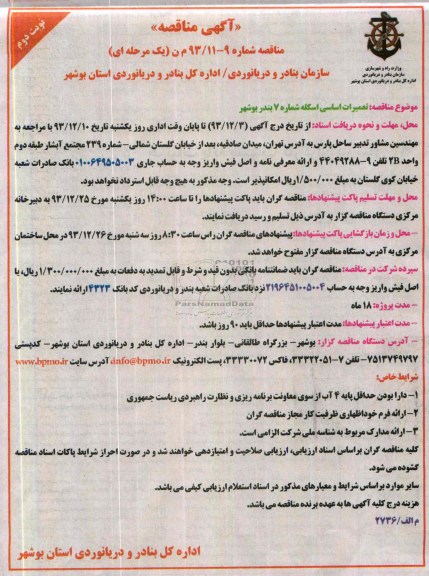 نوبت دوم
«آگهی مناقصه»
مناقصه شماره ۹-۹۳/۱۱ م ن (یک مرحله ای)
سازمان بنادر و دریانوردی/ اداره کل بنادر و دریانوردی استان بوشهر
وزارت راه و شهرسازی
سازمان بنادر و دریانوردی
اداره کل بنادر و دریانوردی استان بوشهر
موضوع مناقصه: تعمیرات اساسی اسکله شماره ۷ بندر بوشهر
محل، مهلت و نحوه دریافت اسناد: از تاریخ درج آگهی (۹۳/۱۲/۳) تا پایان وقت اداری روز یکشنبه تاریخ ۹۳/۱۲/۱۰ با مراجعه به
مهندسین مشاور تدبیر ساحل پارس به آدرس تهران، میدان صادقیه، بعد از خیابان گلستان شمالی – شماره ۲۳۹ مجتمع آبشار طبقه دوم
واحد 2B تلفن ۹-۴۴۰۴۹۲۸۸ و ارائه معرفی نامه و اصل فیش واریز وجه به حساب جاری ۰۱۰۰۶۴۹۵۰۵۰۰۳ بانک صادرات شعبه
خیابان کوی گلستان به مبلغ ۱/۵۰۰/۰۰۰ ریال امکانپذیر است. وجه مذکور به هیچ وجه قابل استرداد نخواهد بود.
محل و مهلت تسلیم پاکت پیشنهادها: مناقصه گران باید پاکت پیشنهادها را تا ساعت ۱۴:۰۰ روز یکشنبه مورخ ۹۳/۱۲/۲۵ به دبیرخانه
مرکزی دستگاه مناقصه گزار به آدرس ذیل تسلیم و رسید دریافت نمایند.
– محل و زمان بازگشایی پاکت پیشنهادها: پیشنهادهای مناقصه گران راس ساعت ۸:۳۰ روز سه شنبه مورخ ۹۳/۱۲/۲۶ در محل ساختمان
مرکزی به آدرس دستگاه مناقصه گزار مفتوح خواهد شد.
سپرده شرکت در مناقصه: مناقصه گران باید ضمانتنامه بانکی بدون قید و شرط و قابل تمدید به دفعات به مبلغ ۱/۳۰۰/۰۰۰/۰۰۰ ریال، یا
اصل فیش واریز وجه به حساب ۲۱۹۶۴۵۱۰۰۵۰۰۴ نزد بانک صادرات شعبه بندر و دریانوردی کد بانک ۴۳۲۳ ارائه نمایند.
ParsNamadData
– مدت پروژه: ۱۸ ماه
– مدت اعتبار پیشنهادها: مدت اعتبار پیشنهادها حداقل باید ۹۰ روز باشد.
– آدرس دستگاه مناقصه گزار: بوشهر – بزرگراه طالقانی – بلوار بندر – اداره کل بنادر و دریانوردی استان بوشهر – کدپستی
۷۵۱۳۷۴۹۷۹۷ – تلفن ۷-۳۳۳۲۲۰۵۱، فاکس ۳۳۳۳۰۰۷۲، پست الکترونیک info@bpmo.ir، آدرس سایت www.bpmo.ir
شرایط خاص:
۱- دارا بودن حداقل پایه ۴ آب از سوی معاونت برنامه ریزی و نظارت راهبردی ریاست جمهوری
۲- ارائه فرم خوداظهاری ظرفیت کار مجاز مناقصه گران
۳- ارائه مدارک مربوط به شناسه ملی شرکت الزامی است.
کلیه مناقصه گران براساس اسناد ارزیابی، ارزیابی صلاحیت و امتیازدهی خواهند شد و در صورت احراز شرایط پاکات اسناد مناقصه
گشوده می شود.
سایر موارد براساس شرایط و معیارهای مذکور در اسناد استعلام ارزیابی کیفی می باشد.
هزینه درج کلیه آگهی ها به عهده برنده مناقصه می باشد.
م الف/۲۷۳۶
اداره کل بنادر و دریانوردی استان بوشهر